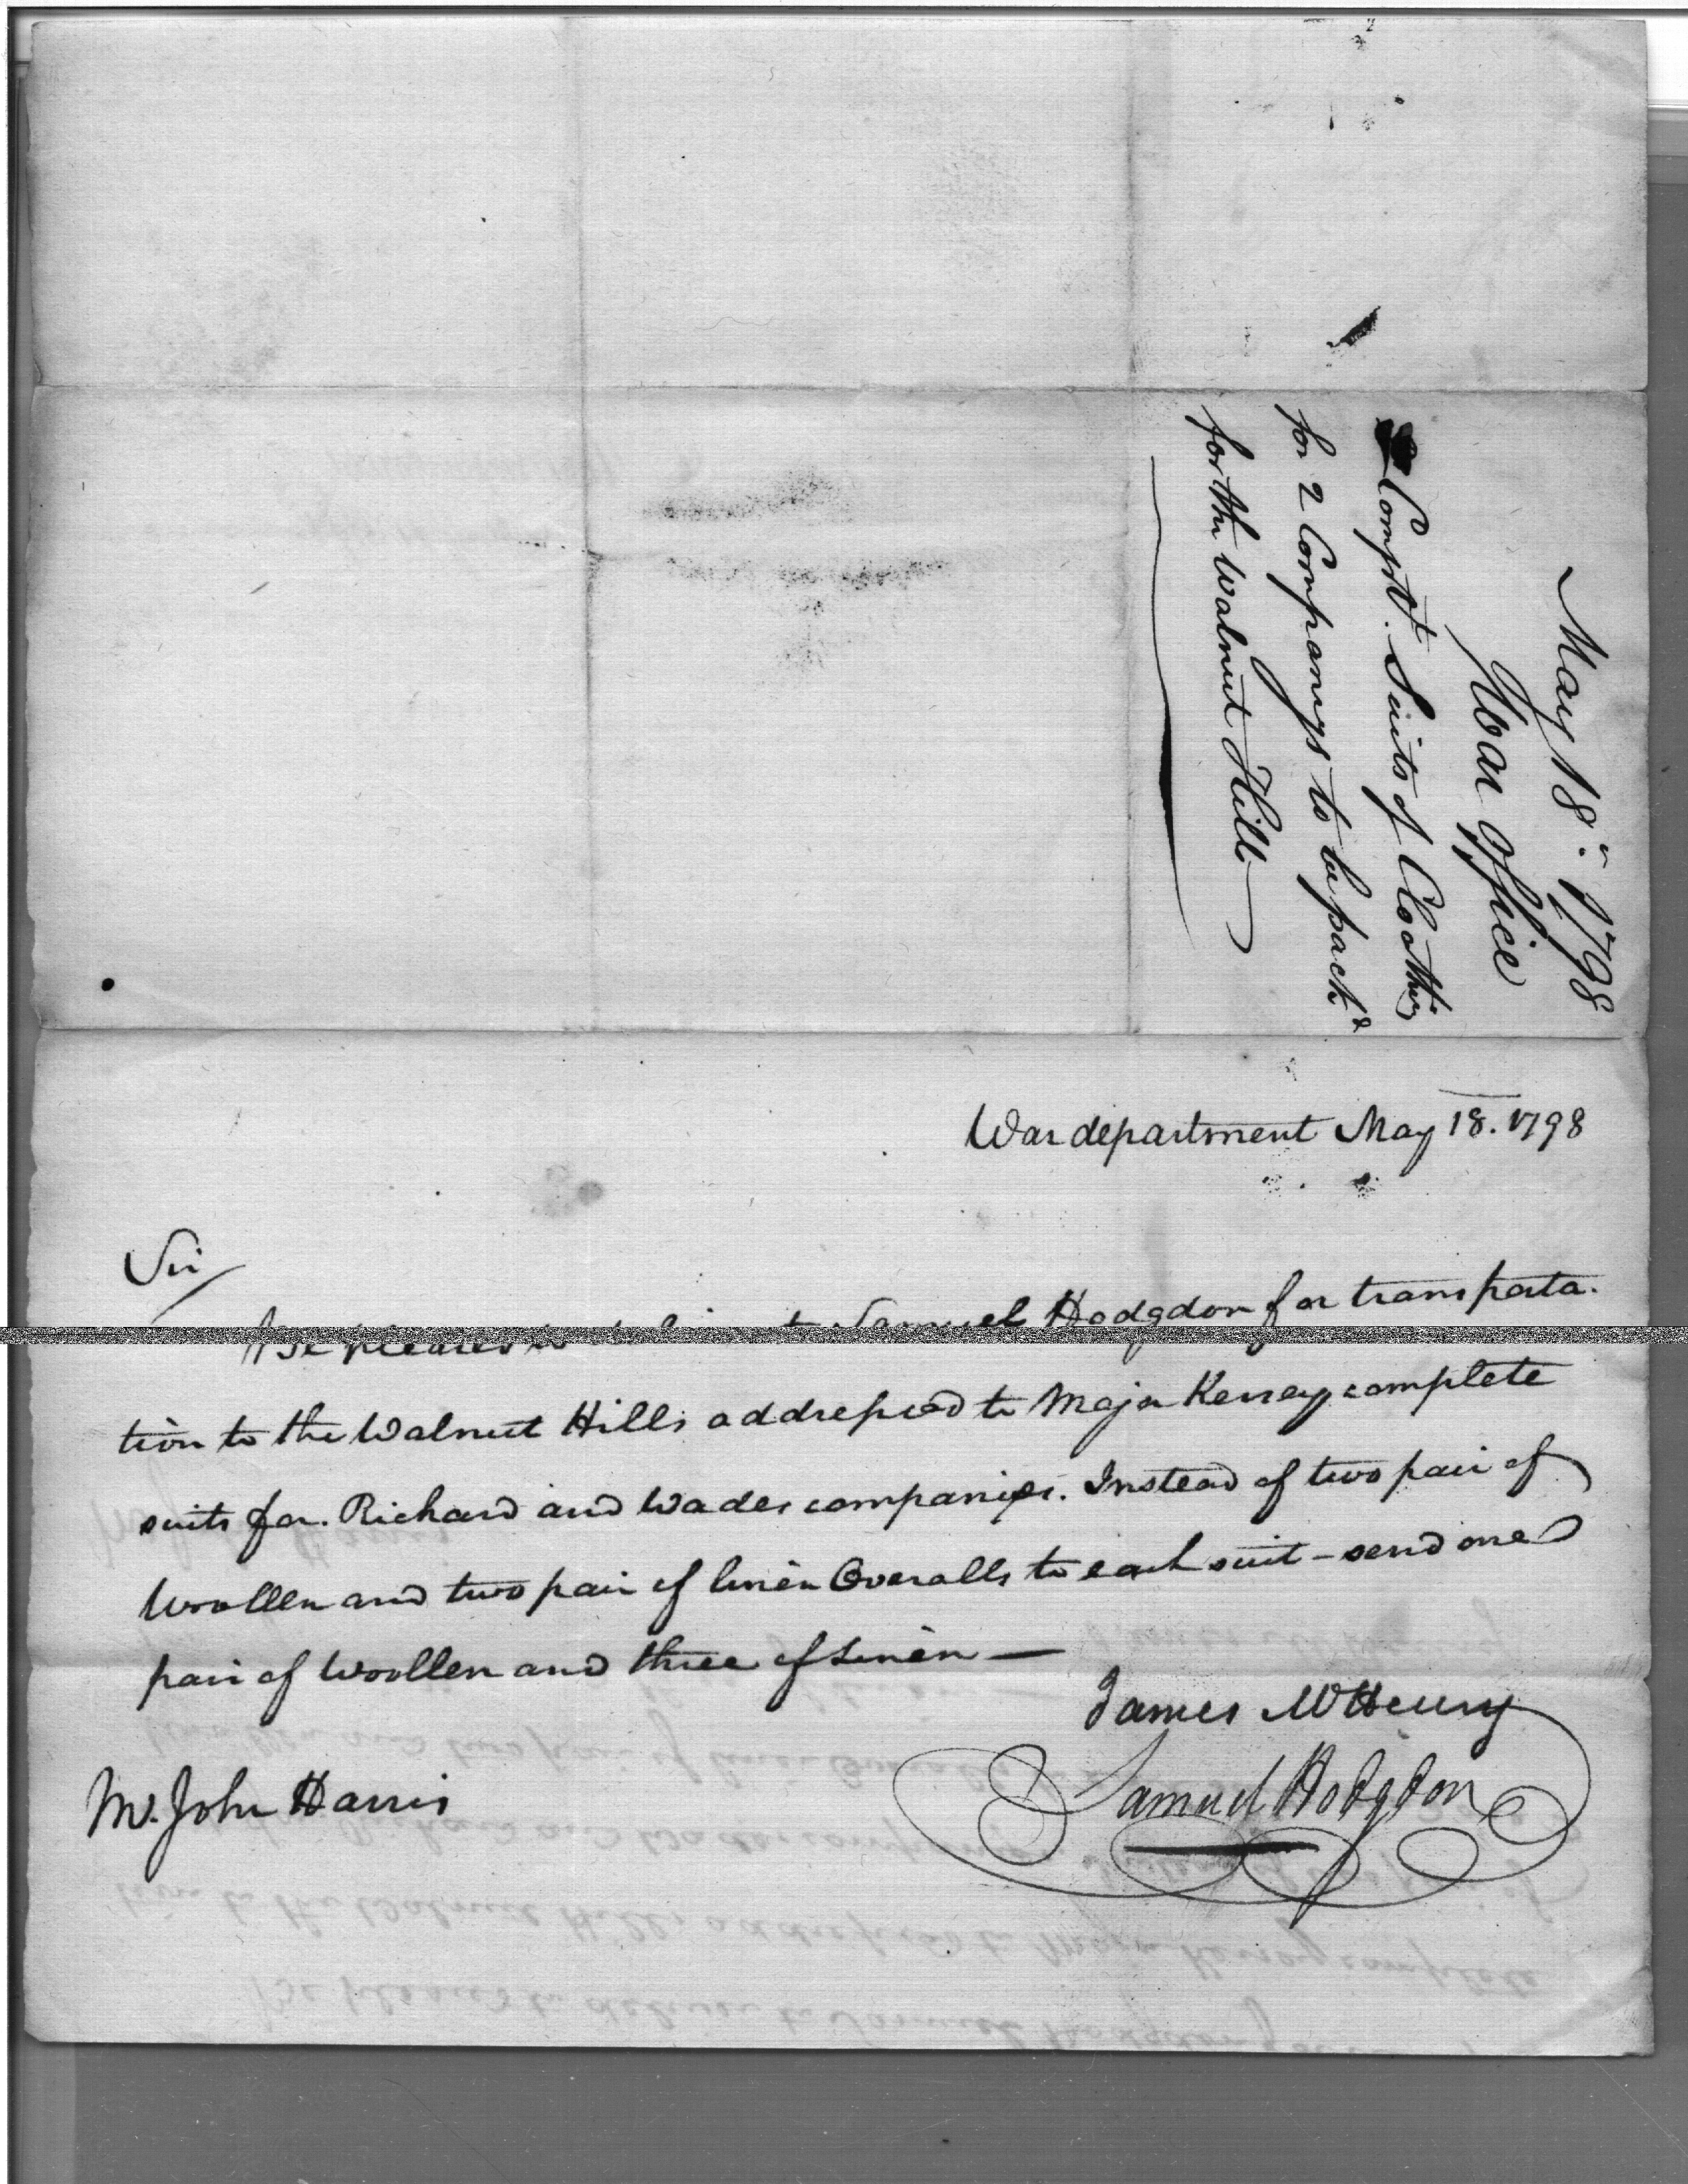 May 18. 1798
War Office
Compt. Suits of Cloathg
for 2 Companys to be pack'd
for the Walnut Hills
War department May 18. 1798
Sir
Be pleased to Samuel Hodgdon for transporta-
tion to the Walnut Hills addressed to Major Kersey complete
suits for Richard and Wades companies. Instead of two pair of
Woollen and two pair of linen Overalls to each suit – send one
pair of Woollen and three of Linen —
James McHenry
Samuel Hodgdon
Mr. John Harris